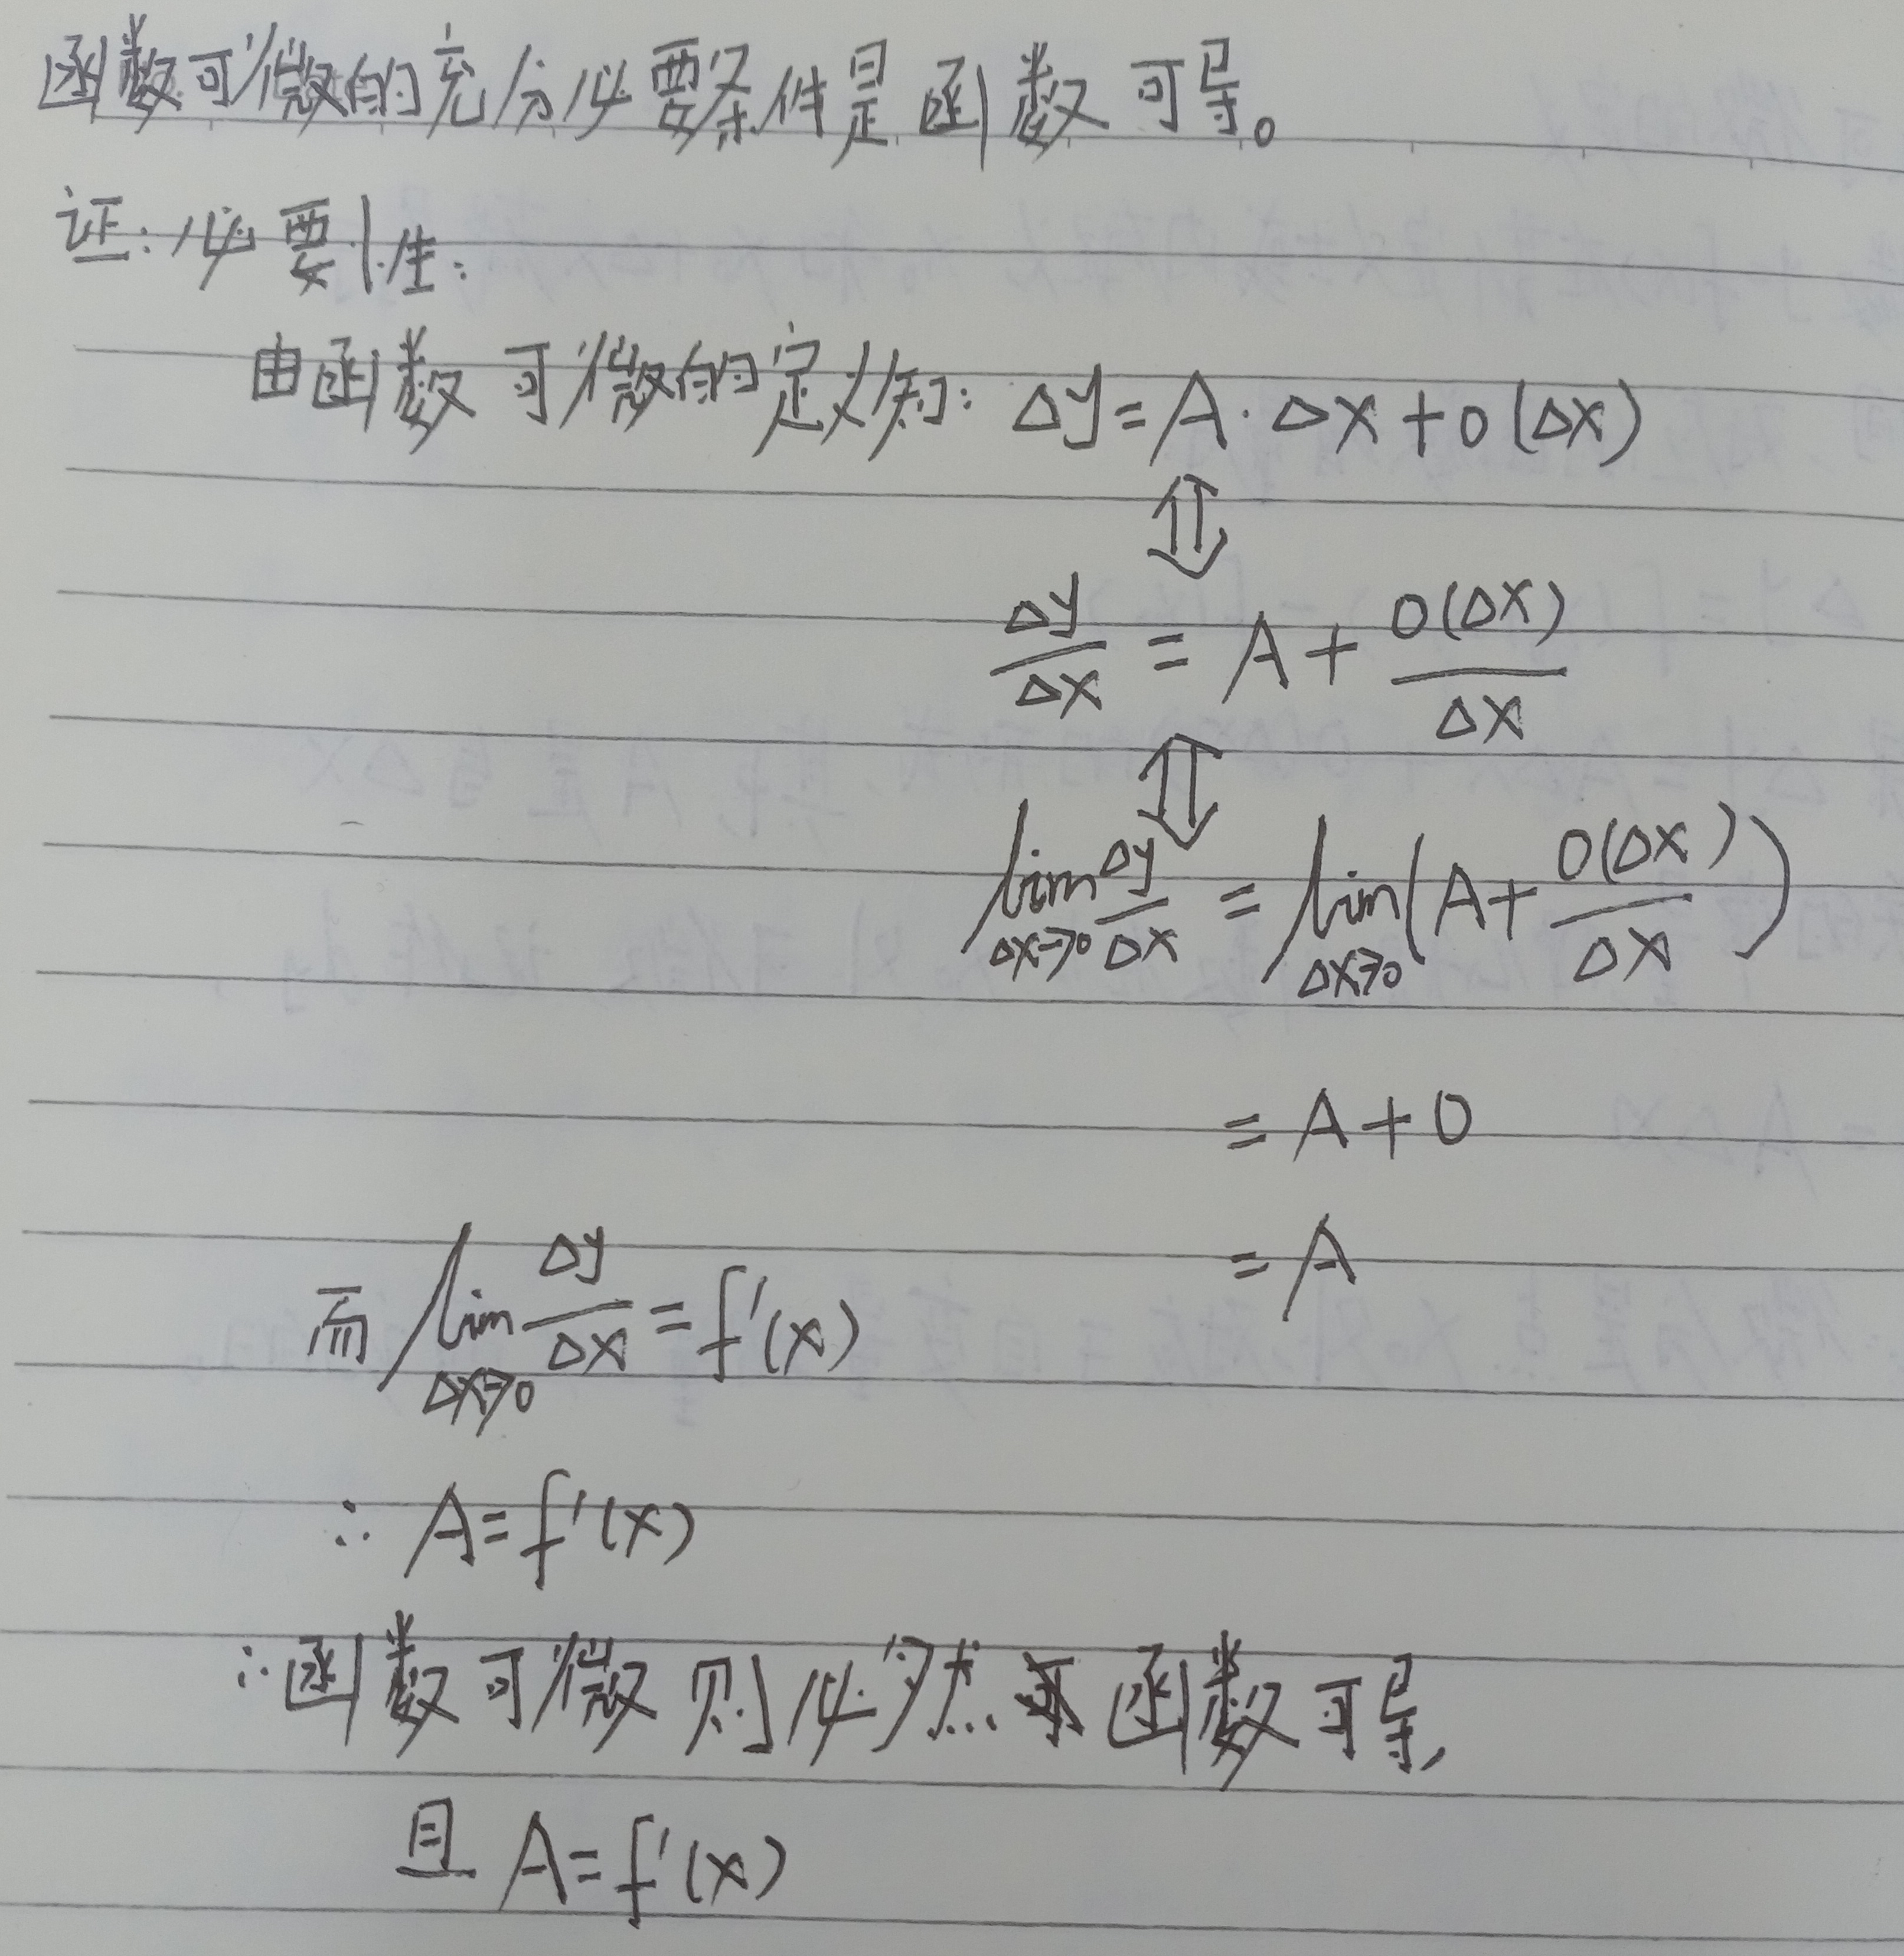 函数可微的充分必要条件是函数可导。
证:必要性:
由函数可微的定义知: Δy=A·Δx+o(Δx)
⇕
Δy/Δx = A+o(Δx)/Δx
⇕
lim Δx→0 Δy/Δx = lim Δx→0 (A+o(Δx)/Δx)
=A+0
=A
而 lim Δx→0 Δy/Δx = f'(x)
∴ A=f'(x)
∴函数可微则必然函数可导,
且 A=f'(x)